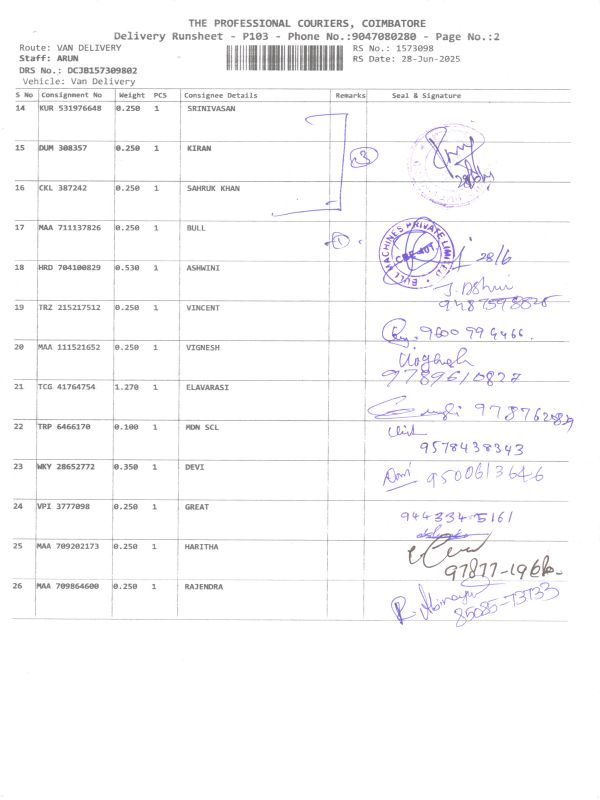 THE PROFESSIONAL COURIERS, COIMBATORE
Delivery Runsheet - P103 - Phone No.:9047080280 - Page No.:2
Route: VAN DELIVERY RS No.: 1573098
Staff: ARUN RS Date: 28-Jun-2025
DRS No.: DCJB157309802
Vehicle: Van Delivery
S No Consignment No Weight PCS Consignee Details Remarks Seal & Signature
14 KUR 531976648 0.250 1 SRINIVASAN
15 DUM 308357 0.250 1 KIRAN 3
16 CKL 387242 0.250 1 SAHRUK KHAN
17 MAA 711137826 0.250 1 BULL 1 BULL MACHINES PRIVATE LIMITED 28/6
18 HRD 704100829 0.530 1 ASHWINI
19 TRZ 215217512 0.250 1 VINCENT
20 MAA 111521652 0.250 1 VIGNESH Vignesh
9789610827
21 TCG 41764754 1.270 1 ELAVARASI
22 TRP 6466170 0.100 1 MDN SCL
9578438343
23 WKY 28652772 0.350 1 DEVI Devi 9500613646
24 VPI 3777098 0.250 1 GREAT 944334-5161
25 MAA 709202173 0.250 1 HARITHA
26 MAA 709864600 0.250 1 RAJENDRA
85085-73733